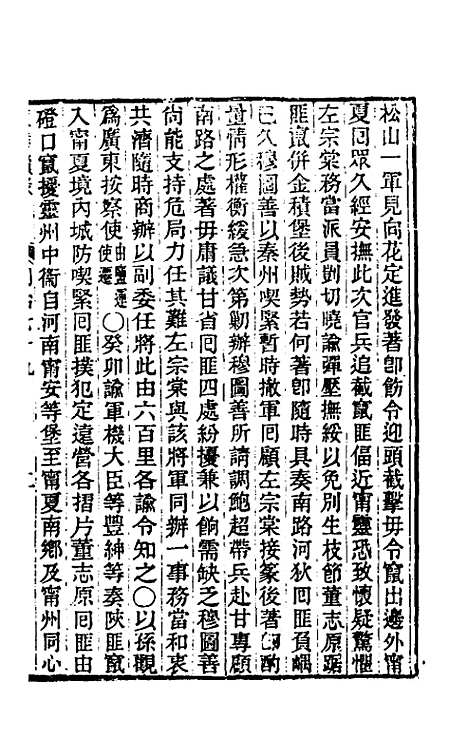 松山一軍見向花定進發著卽飭令迎頭截擊毋令竄出邊外甯
夏囘眾久經安撫此次官兵追截竄匪偪近甯靈恐致懷疑驚懼
左宗棠務當派員剴切曉諭彈壓撫綏以免別生枝節董志原踞
匪竄併金積堡後賊勢若何著卽隨時具奏南路河狄囘匪負嵎
已久穆圖善以秦州喫緊暫時撤軍囘顧左宗棠接篆後著卽酌
量情形權衡緩急次第勦辦穆圖善所請調鮑超帶兵赴甘專顧
南路之處著毋庸議甘省囘匪四處紛擾兼以餉需缺乏穆圖善
尙能支持危局力任其難左宗棠與該將軍同辦一事務當和衷
共濟隨時商辦以副委任將此由六百里各諭令知之〇以孫觀
爲廣東按察使由鹽運使遷〇癸卯諭軍機大臣等豐紳等奏陝匪竄
入甯夏境內城防喫緊囘匪撲犯定遠營各摺片董志原囘匪由
磴口竄擾靈州中衞自河南甯安等堡至甯夏南鄉及甯州同心